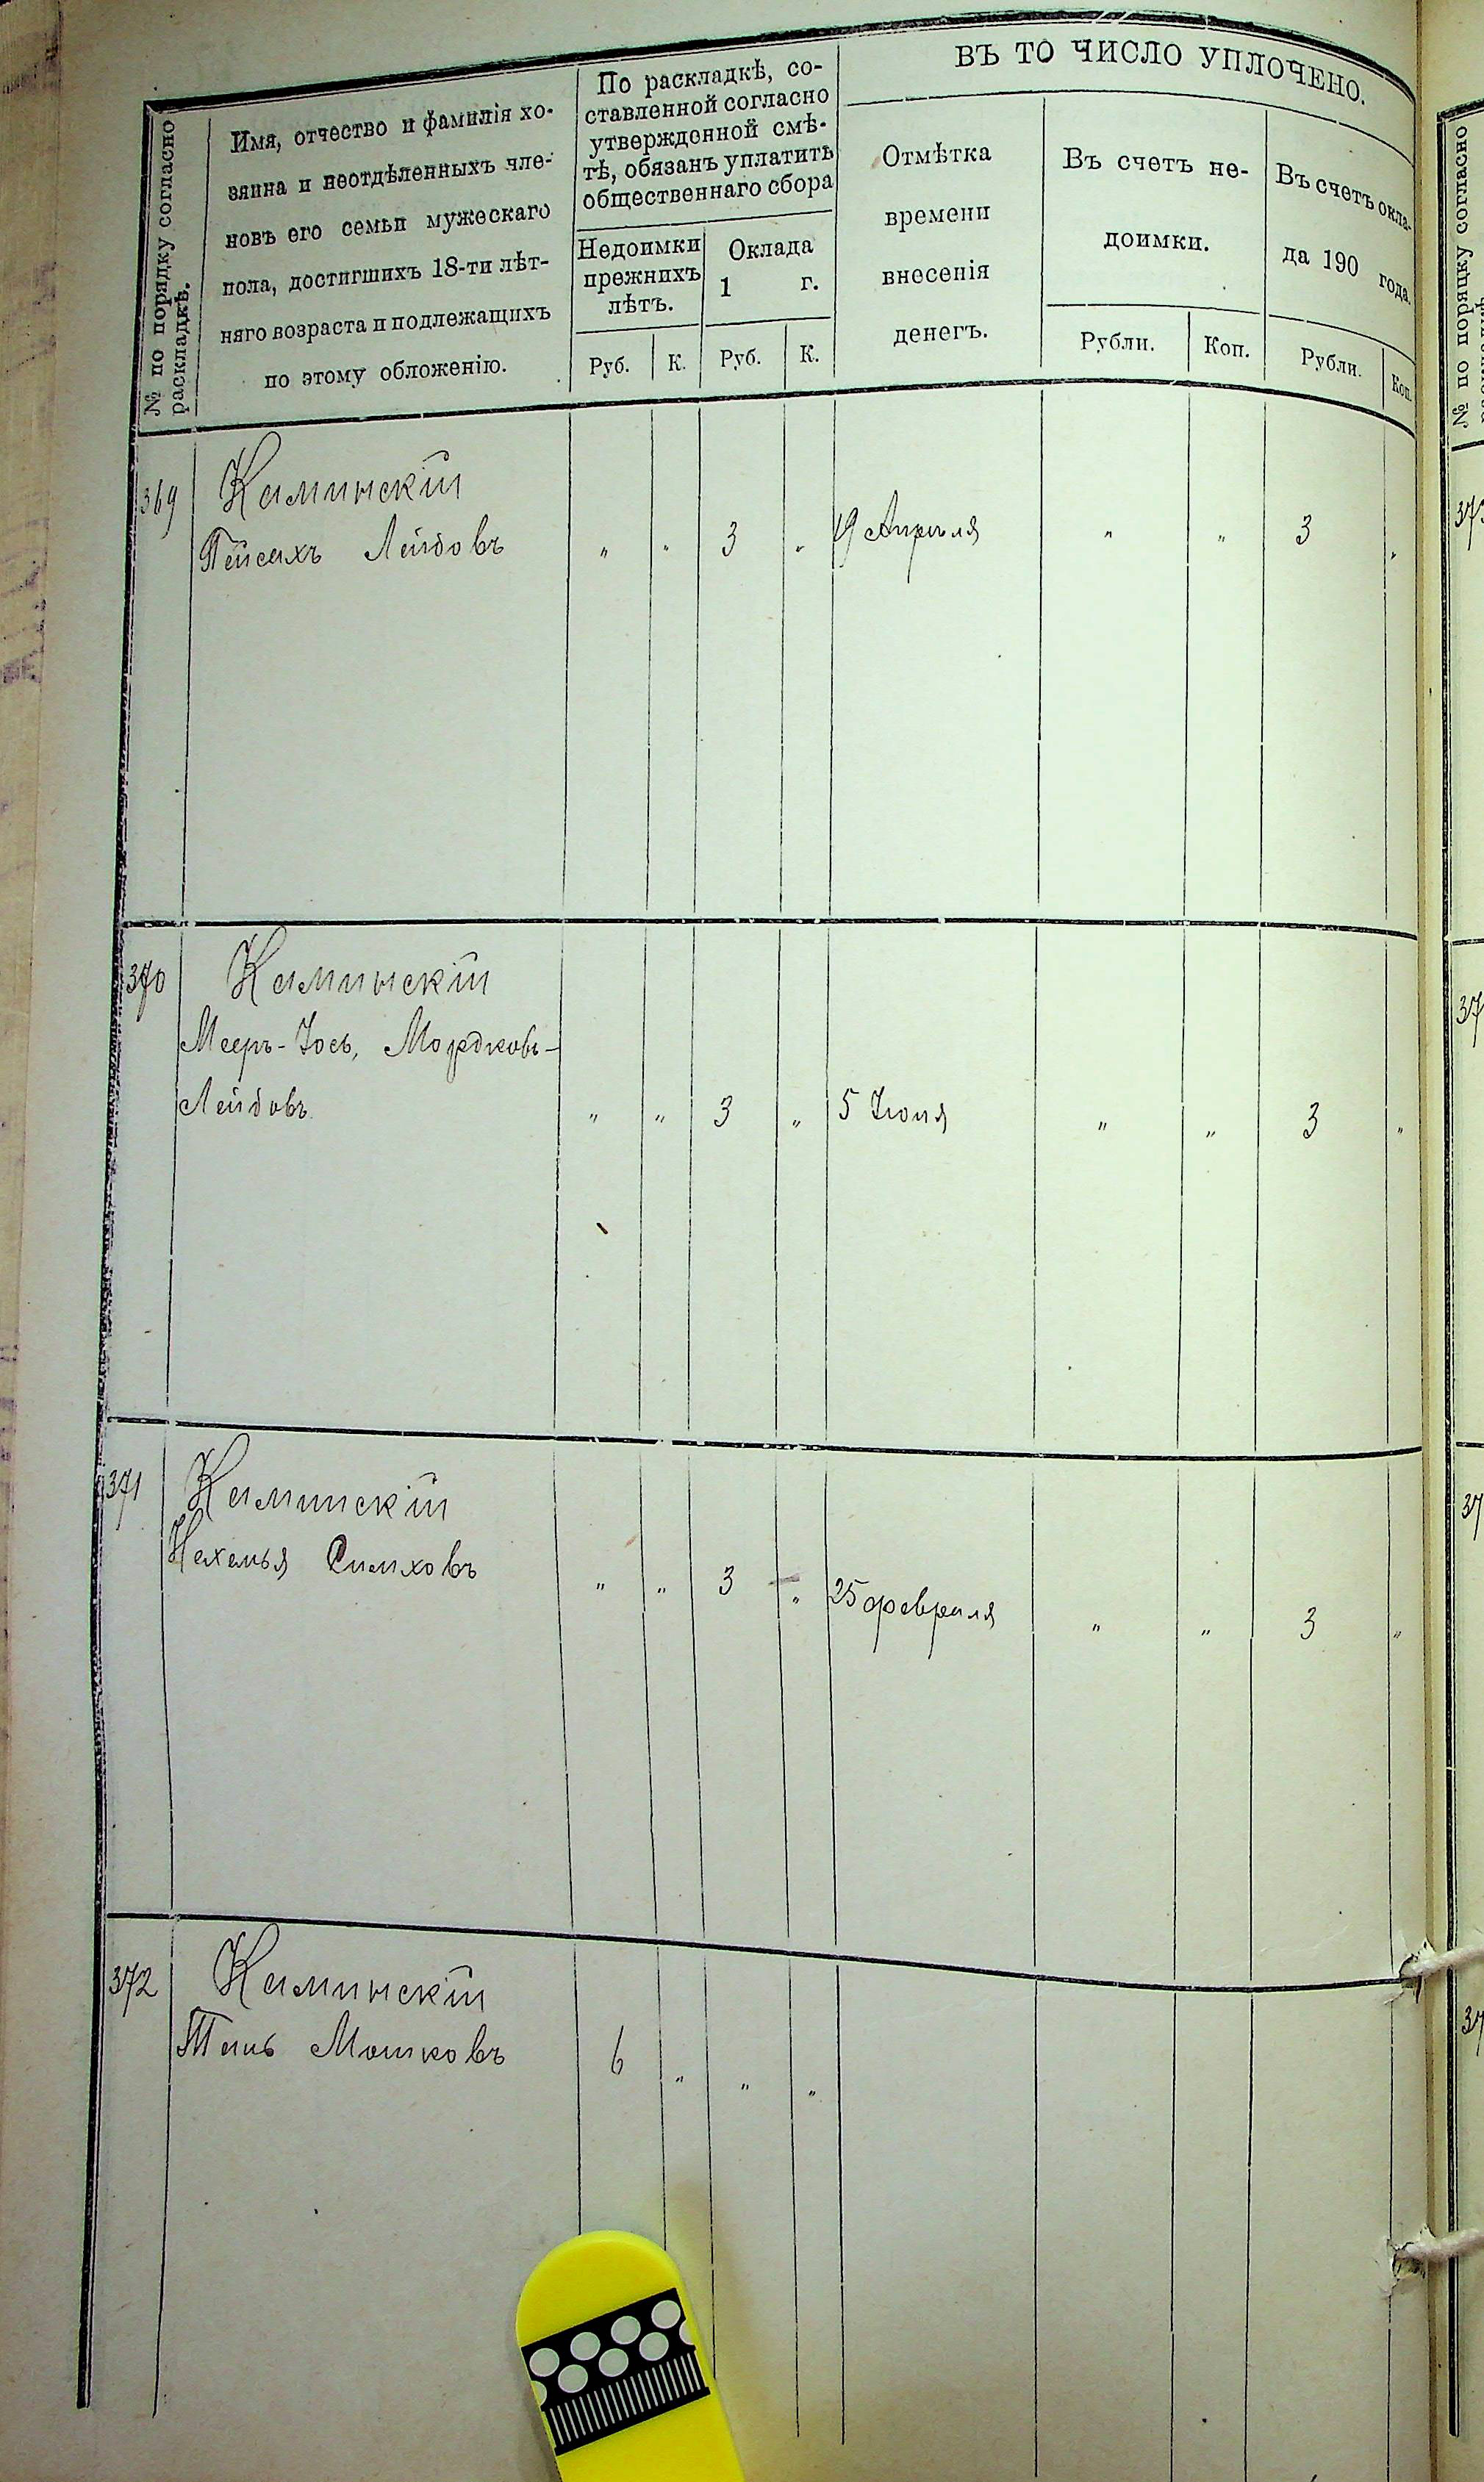 ВЪ ТО ЧИСЛО УПЛОЧЕНО.
№ по порядку согласно
раскладкѣ.
Имя, отчество и фамилія хо-
зяина и неотдѣленныхъ чле-
новъ его семьи мужескаго
пола, достигшихъ 18-ти лѣт-
няго возраста и подлежащихъ
по этому обложенію.
По раскладкѣ, со-
ставленной согласно
утвержденной смѣ-
тѣ, обязанъ уплатить
общественнаго сбора
Недоимки
прежнихъ
лѣтъ.
Оклада
1 г.
Руб. К. Руб. К.
Отмѣтка
времени
внесенія
денегъ.
Въ счетъ не-
доимки.
Рубли. Коп.
Въ счетъ окла-
да 190 года.
Рубли. Коп.
369 Каминскій
Пейсахъ Лейбовъ " " 3 " 19 Апрѣля " " 3 "
370 Каминскій
Мееръ-Іось, Мордковъ-
Лейбовъ " " 3 " 5 Іюля " " 3 "
371 Каминскій
Нахамья Симховъ " " 3 " 25 февраля " " 3 "
372 Каминскій
Мошковъ 6 " " "
№ по порядку согласно